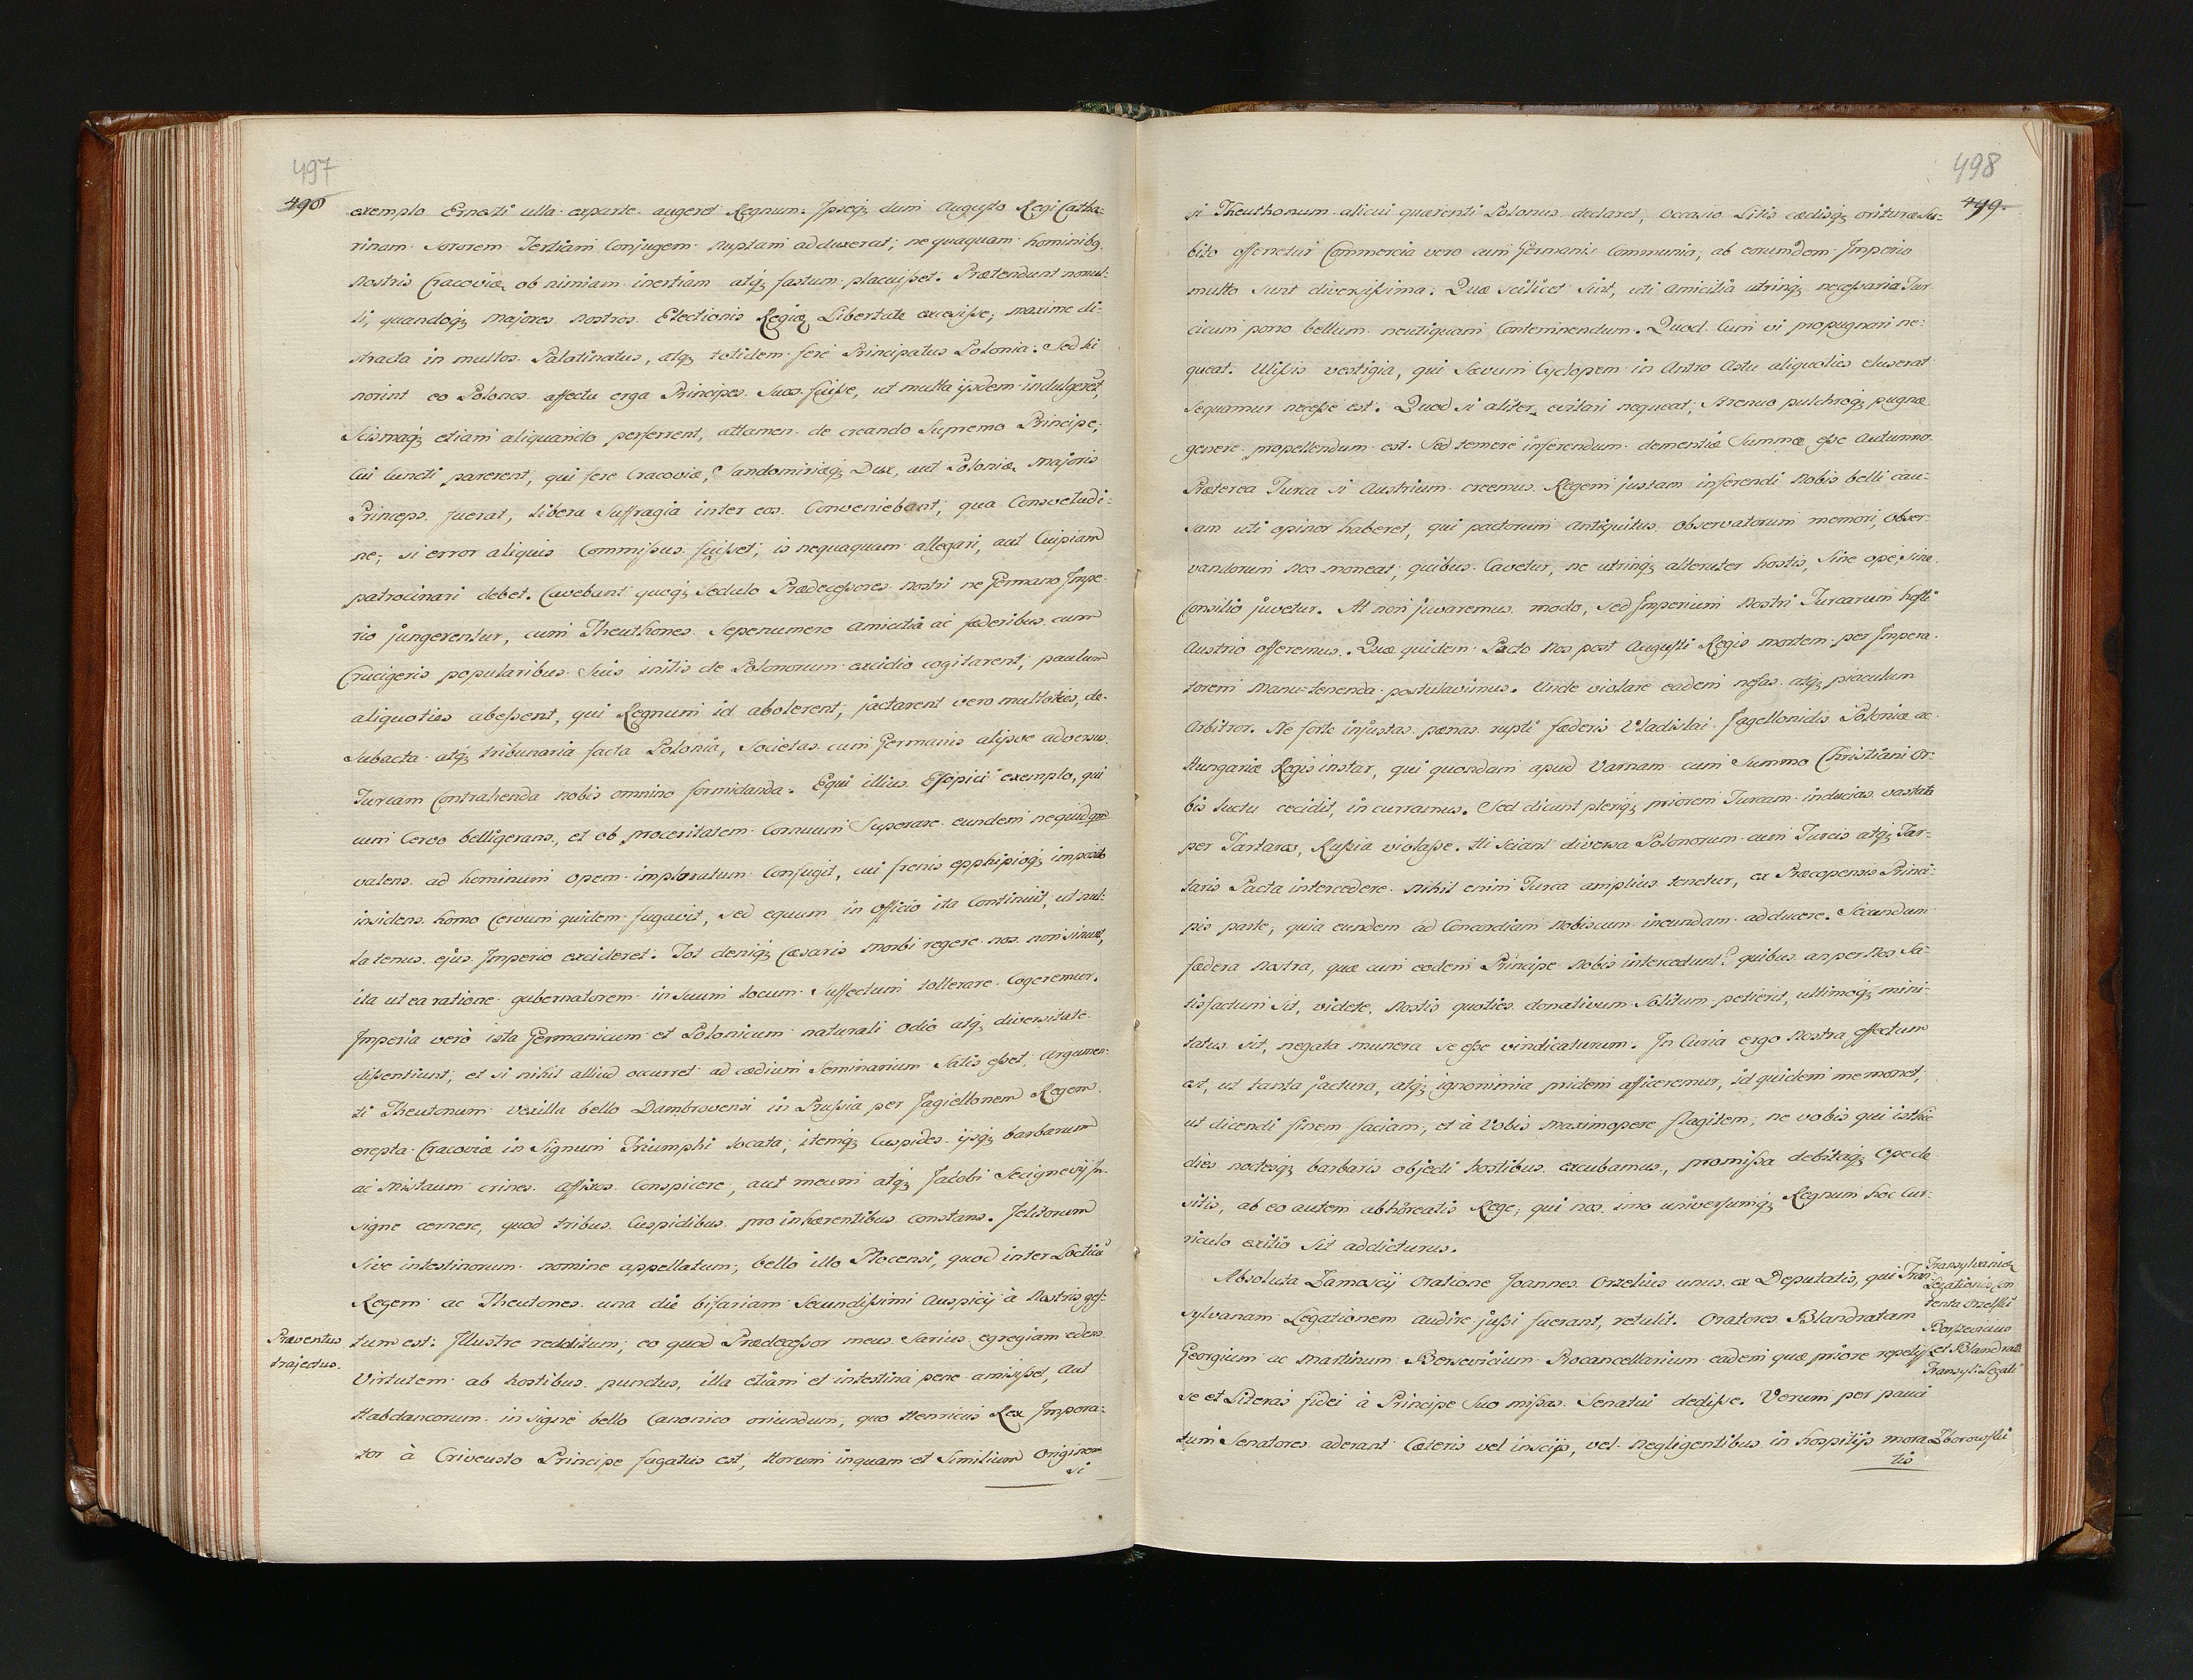 497
498
exemplo Ernesti ulla exparte augeret Regnum. Ipseq; dum Augusto Regi Catha-
rinam Sororem Tertiam Conjugem Nuptam adduxerat; nequaquam hominibq.
Nostris Cracoviæ ob nimiam inertiam atq; fastum placuisset. Prætendunt nonul-
li, quandoq; Majores Nostros Electionis Regiæ Libertate excessisse; maxime di-
stracta in multos Palatinatus, atq; totidem fere Principatus Polonia. Sed hi
norint eo Polonos affectu erga Principes Suos fuisse, ut multa ijsdem indulgeret,
Scismaq; etiam aliquando perferrent, attamen de creando Supremo Principe;
Cui Cuncti parerent, qui fere Cracoviæ, Sandomiriæq; Dux, aut Poloniæ Majoris
Princeps fuerat, libera Suffragia inter eos Conveniebant; qua Consvetudi-
ne; si error aliquis Commissus fuisset; is nequaquam allegari, aut Cuipiam
patrocinari debet. Cavebant quoq; Sedulo Prædecessores Nostri ne Germano Impe-
rio jungerentur, cum Theuthones Sepenumero Amicitia ac fæderibus cum
Crucigeris popularibus Suis initis de Polonorum excidio cogitarent; paulum
aliquoties abessent, qui Regnum id abolerent, jactarent vero multoties, de-
Subacta atq; tribunaria facta Polonia, Societas cum Germanis alijsve adversus
Turcam Contrahenda nobis omnino formidanda. Equi illius Esopici exemplo, qui
cum Cervo belligerans, et ob proceritatem Cornuum Superare eundem nequidqm
valens ad hominum opem imploratum Confugit, cui frenis epphipioq; imposito
insidens homo Cervum quidem fugavit, Sed equum in Officio ita Continuit, ut nul-
latenus ejus Imperio excideret. Tot deniq; Cæsaris Morbi regere nos non sinunt,
ita ut ea ratione gubernatorem in Suum Locum Suffectum tollerare Cogeremur.
Imperia verò ista Germanicum et Polonicum naturali Odio atq; diversitate
dissentiunt; et si nihil alliud occurret ad cædium Seminarium Satis esset; Argumen-
ti Theutonum vexilla bello Dambrovensi in Prussia per Jagiellonem Regem
erepta Cracoviæ in Signum Triumphi Locata; itemq; Cuspides ijsq; barbarum
ac Mistaum crines affixos Conspicere, aut meum atq; Jacobi Secignevij In-
signe cernere, quod tribus Cuspidibus pro inhærentibus constans. Jelitorum
Sive intestinorum nomine appellatum; bello illo Plocensi, quod inter Locticu
Regem ac Theutones una die bifariam Secundissimi Auspicij à Nostris ges-
tum est: Illustre redditum; eo quod Prædecessor meus Sarius egregiam edens
Virtutem ab hostibus punctus, illa etiam et intestina pene amisisset, Aut
Habdancorum insigne bello Canonico oriundum, quo Henricus Rex Impera-
tor à Crivousto Principe fugatus est, Horum inquam et Similium Originem
si
Præventus
trajectus.
499.
si Theuthonum alicui quærenti Polonus declaret, occasio Litis cædisq; orituræ Su-
bito offeretur Commercia vero cum Germanis Communia, ab eorumdem Imperio
multo sunt diversissima. Quæ scilicet Sint, uti Amicitia utrinq; necessaria Tur-
cicum porro bellum neutiquam Contemnendum. Quod Cum vi propugnari ne-
queat. Ulissis vestigia, qui Sævum Cyclopem in Antro Astu aliquoties eluserat
Sequamur necesse est. Quod si aliter evitari nequeat; Strenuo pulchroq; pugnæ
genere propellendum est. Sed temere inferendum dementiæ Summæ esse Autumno.
Præterea Turca si Austrium creemus Regem justam inferendi Nobis belli cau-
sam uti opinor haberet, qui pactorum antiquitus observatorum memori, obser-
vandorum nos moneat, quibus Cavetur, ne utrinq; alteruter hostis, Sine ope, sine
Consilio juvetur. At non juvaremus modo, Sed Imperium Nostri Turcarum hosti
Austrio offeremus. Quæ quidem Pacto Nos post Augusti Regis mortem per Impera-
torem Manu-tenenda postulavimus. Unde violare eadem nefas atq; piaculum
Arbitror. Ne forte injustas pænas rupti fæderis Vladislai Jagellonidis Poloniæ ac
Hungariæ Regis instar, qui quondam apud Varnam cum Summo Christiani Or-
bis Luctu cecidit, in curramus. Sed dicunt pleriq; priorem Turcam inducias vastata
per Tartaros, Russia violasse. Hi Sciant diversa Polonorum cum Turcis atq; Tar-
taris Pacta intercedere. Nihil enim Turca amplius tenetur, ex Præcopensis Princi-
pis parte, quia eundem ad Concordiam Nobiscum ineundam adducere. Secundum
fædera Nostra, quæ cum eodem Principe Nobis intercedunt? quibus an per Nos Sa-
tisfactum Sit, videte. Nostis quoties donativum Solitum petierit, ultimoq; mini-
tatus sit, negata munera se esse vindicaturum. In Curia ergo Nostra effectum
est, ut tanta jactura, atq; ignonimia pridem afficeremur, id quidem me monet,
ut dicendi finem faciam, et à Vobis Maximopere flagitem; ne vobis qui isthic
dies noctesq; barbaris objecti hostibus excubamus, promissa debitaq; Ope de
sitis, ab eo autem abhôreatis Rege; qui nos imo universumq; Regnum hoc Cur-
riculo exitio Sit addicturus.
Absoluta Zamoscij Oratione Joannes Orzelius unus ex Deputatis, qui Tran-
sylvanam Legationem audire jussi fuerant, retulit. Oratores Blandratam
Georgium ac Martinum Bersevicium Procancellarium eadem quæ priore repetijs-
se et Literas fidei à Principe Suo missas Senatui dedisse. Verum per pauci
tum Senatores aderant Cæteris vel inscijs, vel Negligentibus in hospitijs mora
tis
Transylvaniæ
Legationis Con
tenta Orzelski
Berszevicius
et Blandrata
Transyl: Legati
Zborowski